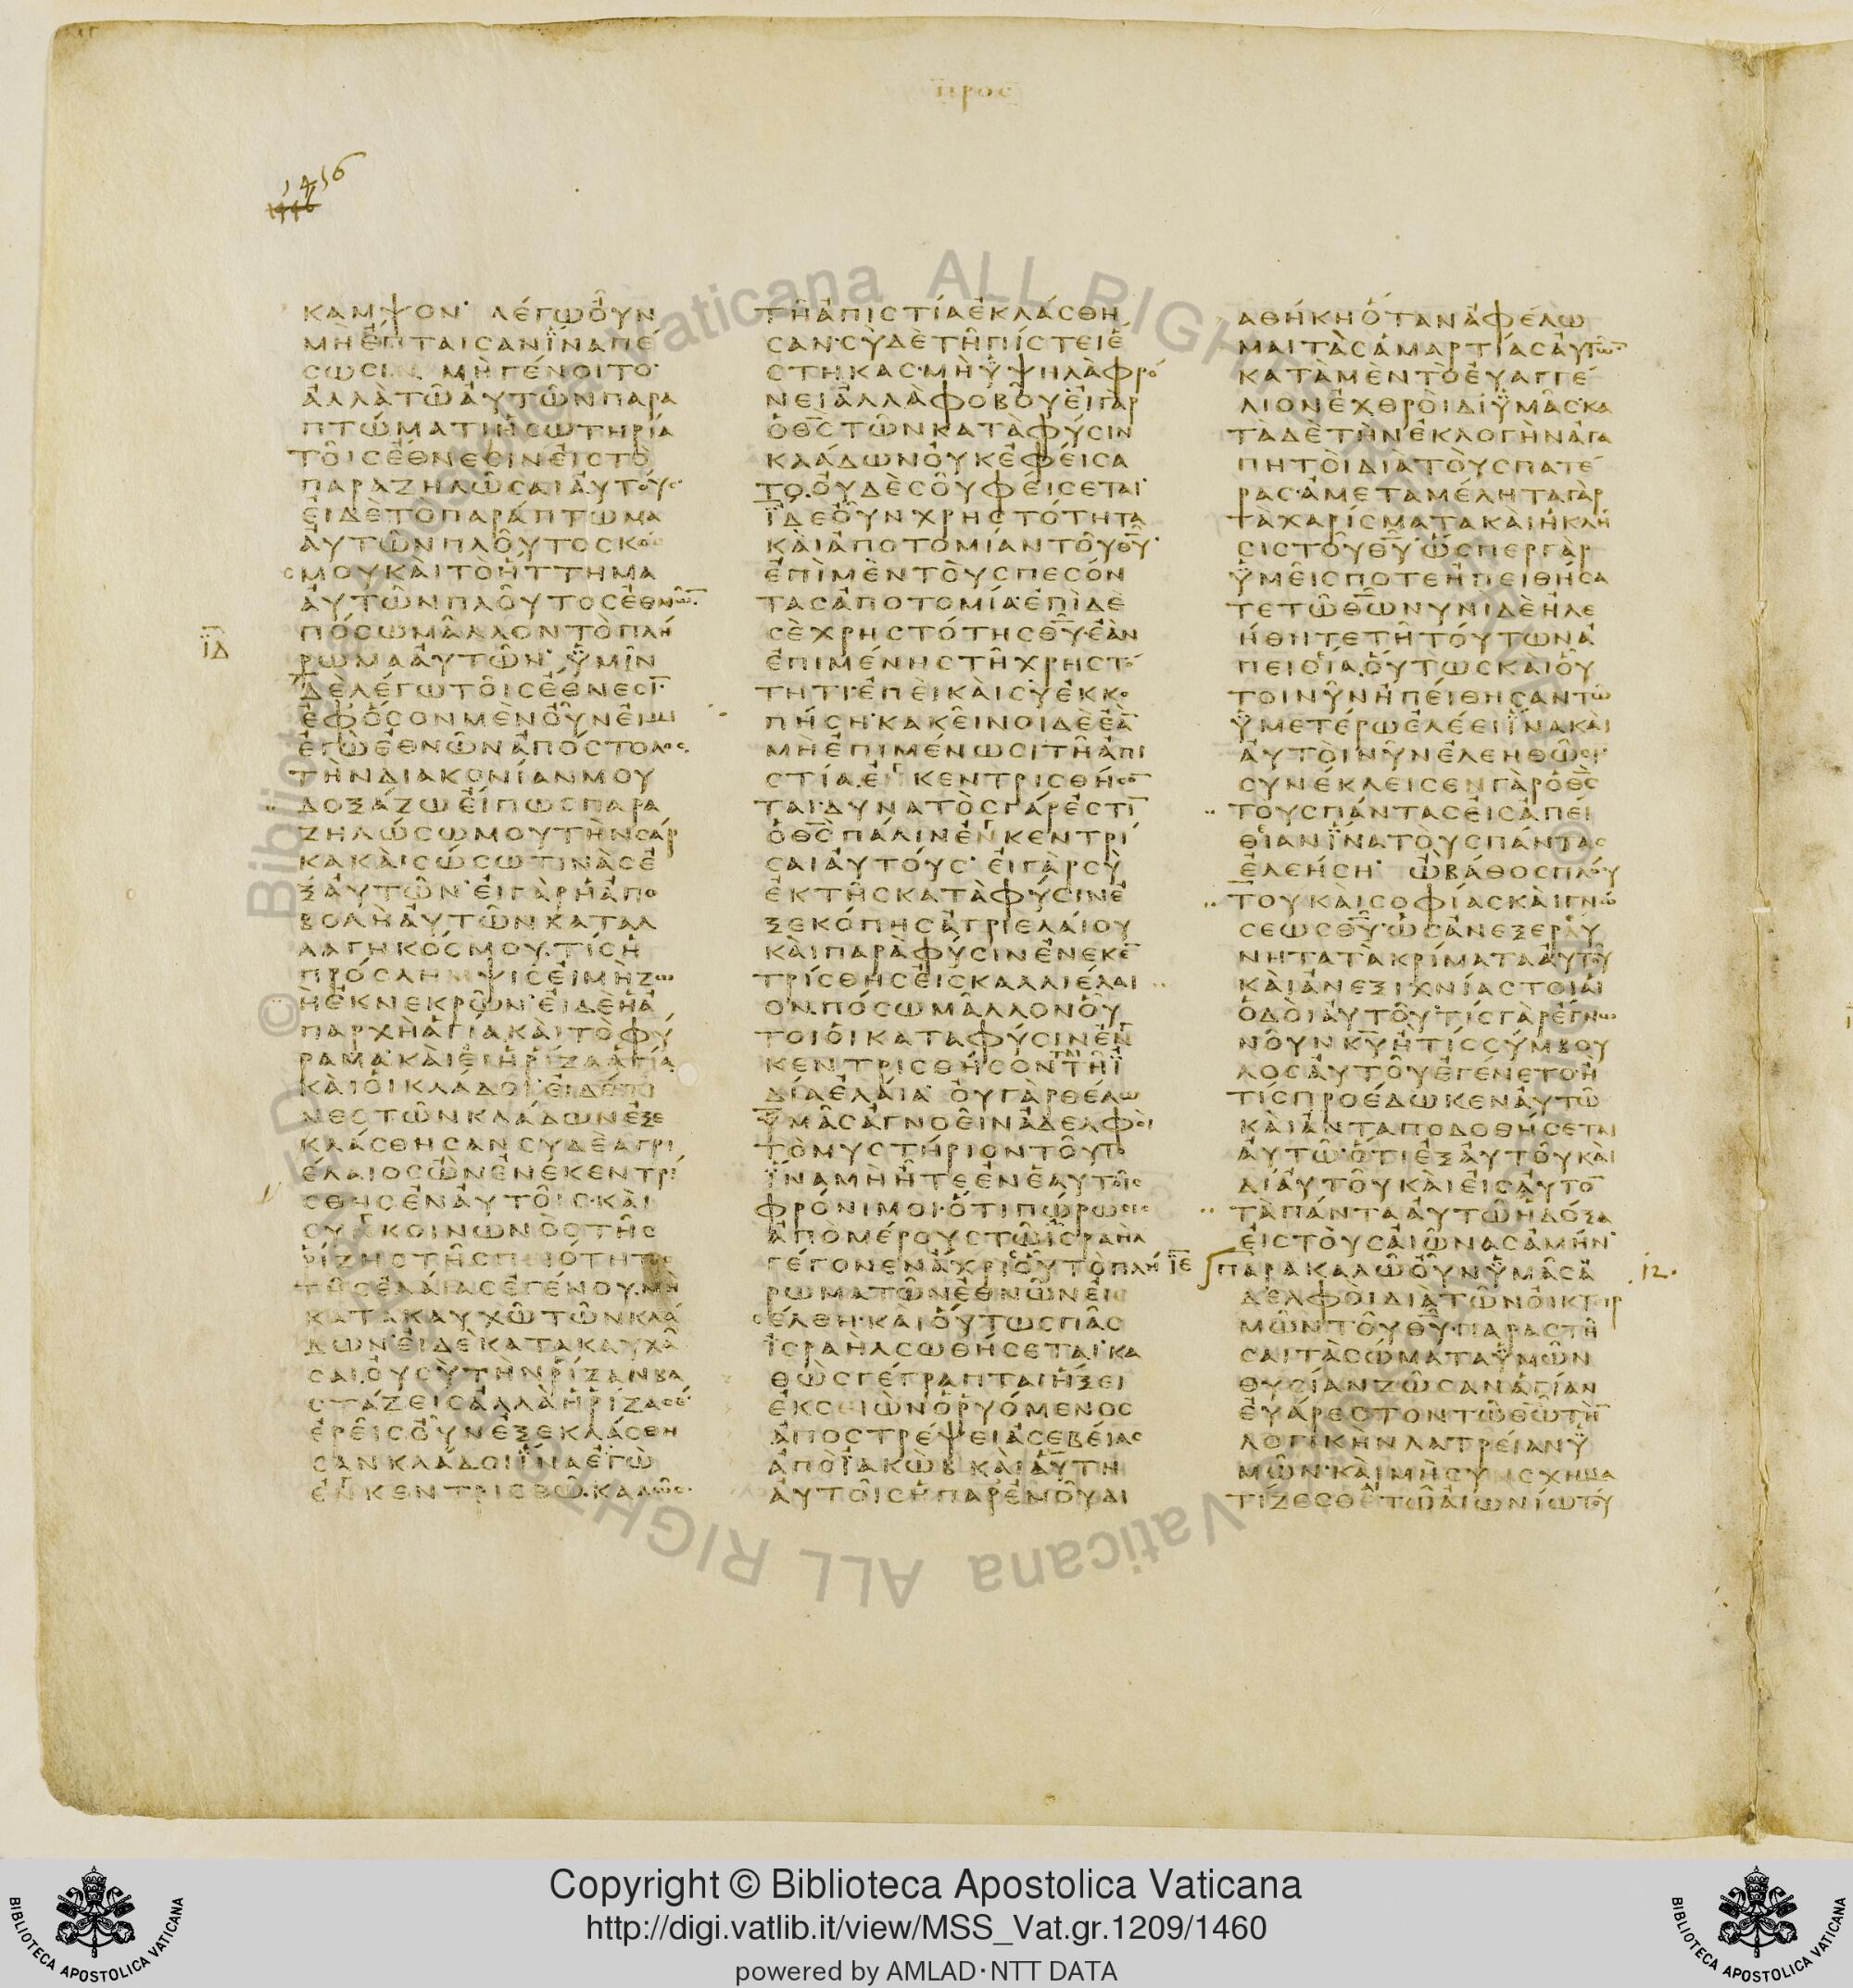 προς
1456
ΚΑΜΨΟΝ· ΛΕΓΩΟΥΝ
ΜΗΕΠΤΑΙCΑΝΙΝΑΠΕ
CΩCΙΝ ΜΗΓΕΝΟΙΤΟ·
ΑΛΛΑΤΩΑΥΤΩΝΠΑΡΑ
ΠΤΩΜΑΤΙΗCΩΤΗΡΙΑ
ΤΟΙCΕΘΝΕCΙΝΕΙCΤΟ
ΠΑΡΑΖΗΛΩCΑΙΑΥΤΟΥC·
ΕΙΔΕΤΟΠΑΡΑΠΤΩΜΑ
ΑΥΤΩΝΠΛΟΥΤΟCΚΟ
CΜΟΥΚΑΙΤΟΗΤΤΗΜΑ
ΑΥΤΩΝΠΛΟΥΤΟCΕΘΝΩ̅·
ΠΟCΩΜΑΛΛΟΝΤΟΠΛΗ
ΙΔ
ΡΩΜΑΑΥΤΩΝ· ΥΜΙΝ
ΔΕΛΕΓΩΤΟΙCΕΘΝΕCΙ̅·
ΕΦΟCΟΝΜΕΝΟΥΝΕΙΜΙ
ΕΓΩΕΘΝΩΝΑΠΟCΤΟΛΟC·
ΤΗΝΔΙΑΚΟΝΙΑΝΜΟΥ
ΔΟΞΑΖΩΕΙΠΩCΠΑΡΑ
ΖΗΛΩCΩΜΟΥΤΗΝCΑΡ
ΚΑΚΑΙCΩCΩΤΙΝΑCΕ
ΞΑΥΤΩΝ·ΕΙΓΑΡΗΑΠΟ
ΒΟΛΗΑΥΤΩΝΚΑΤΑΛ
ΛΑΓΗΚΟCΜΟΥ·ΤΙCΗ
ΠΡΟCΛΗΜΨΙCΕΙΜΗΖΩ
ΗΕΚΝΕΚΡΩΝ·ΕΙΔΕΗΑ
ΠΑΡΧΗΑΓΙΑΚΑΙΤΟΦΥ
ΡΑΜΑ·ΚΑΙΕΙΗΡΙΖΑΑΓΙΑ
ΚΑΙΟΙΚΛΑΔΟΙ·ΕΙΔΕΤΙ
ΝΕCΤΩΝΚΛΑΔΩΝΕΞΕ
ΚΛΑCΘΗCΑΝCΥΔΕΑΓΡΙ
ΕΛΑΙΟCΩΝΕΝΕΚΕΝΤΡΙ
CΘΗCΕΝΑΥΤΟΙC·ΚΑΙ
CΥΓΚΟΙΝΩΝΟCΤΗC
ΡΙΖΗCΤΗCΠΙΟΤΗΤΟC
ΤΗCΕΛΑΙΑCΕΓΕΝΟΥ·ΜΗ
ΚΑΤΑΚΑΥΧΩΤΩΝΚΛΑ
ΔΩΝ·ΕΙΔΕΚΑΤΑΚΑΥΧΑ
CΑΙ·ΟΥCΥΤΗΝΡΙΖΑΝΒΑ
CΤΑΖΕΙCΑΛΛΑΗΡΙΖΑCΕ·
ΕΡΕΙCΟΥΝΕΞΕΚΛΑCΘΗ
CΑΝΚΛΑΔΟΙΙΝΑΕΓΩ
ΕΝΚΕΝΤΡΙCΘΩ·ΚΑΛΩC·
ΤΗΑΠΙCΤΙΑΕΚΛΑCΘΗ
CΑΝ·CΥΔΕΤΗΠΙCΤΕΙΕ
CΤΗΚΑC·ΜΗΥΨΗΛΑΦΡΟ
ΝΕΙΑΛΛΑΦΟΒΟΥΕΙΓΑΡ
ΟΘ̅C̅ΤΩΝΚΑΤΑΦΥCΙΝ
ΚΛΑΔΩΝΟΥΚΕΦΕΙCΑ
ΤΟ·ΟΥΔΕCΟΥΦΕΙCΕΤΑΙ·
ΙΔΕΟΥΝΧΡΗCΤΟΤΗΤΑ
ΚΑΙΑΠΟΤΟΜΙΑΝΤΟΥΘ̅Υ̅·
ΕΠΙΜΕΝΤΟΥCΠΕCΟΝ
ΤΑCΑΠΟΤΟΜΙΑ·ΕΠΙΔΕ
CΕΧΡΗCΤΟΤΗCΘ̅Υ̅·ΕΑΝ
ΕΠΙΜΕΝΗCΤΗΧΡΗCΤΟ
ΤΗΤΙ·ΕΠΕΙΚΑΙCΥΕΚΚΟ
ΠΗCΗ·ΚΑΚΕΙΝΟΙΔΕΕΑ̅
ΜΗΕΠΙΜΕΝΩCΙΤΗΑΠΙ
CΤΙΑ·ΕΝΚΕΝΤΡΙCΘΗCΟ̅
ΤΑΙ·ΔΥΝΑΤΟCΓΑΡΕCΤΙ̅
ΟΘ̅C̅ΠΑΛΙΝΕΝΚΕΝΤΡΙ
CΑΙΑΥΤΟΥC· ΕΙΓΑΡCΥ
ΕΚΤΗCΚΑΤΑΦΥCΙΝΕ
ΞΕΚΟΠΗCΑΓΡΙΕΛΑΙΟΥ
ΚΑΙΠΑΡΑΦΥCΙΝΕΝΕΚΕ̅
ΤΡΙCΘΗCΕΙCΚΑΛΛΙΕΛΑΙ
ΟΝ·ΠΟCΩΜΑΛΛΟΝΟΥ
ΤΟΙΟΙΚΑΤΑΦΥCΙΝΕΝ
ΚΕΝΤΡΙCΘΗCΟΝΤΑΙΤΗΙ
ΔΙΑΕΛΑΙΑ· ΟΥΓΑΡΘΕΛΩ
ΥΜΑCΑΓΝΟΕΙΝΑΔΕΛΦΟΙ
ΤΟΜΥCΤΗΡΙΟΝΤΟΥΤΟ
ΙΝΑΜΗΗΤΕΕΝΕΑΥΤΟΙC
ΦΡΟΝΙΜΟΙ·ΟΤΙΠΩΡΩCΙC
ΑΠΟΜΕΡΟΥCΤΩΙCΡΑΗΛ
ΓΕΓΟΝΕΝΑΧΡΙCΟΥΤΟΠΛΗ
ΡΩΜΑΤΩΝΕΘΝΩΝΕΙC
ΕΛΘΗ·ΚΑΙΟΥΤΩCΠΑC
ΙCΡΑΗΛCΩΘΗCΕΤΑΙ·ΚΑ
ΘΩCΓΕΓΡΑΠΤΑΙΗΞΕΙ
ΕΚCΙΩΝΟΡΥΟΜΕΝΟC
ΑΠΟCΤΡΕΨΕΙΑCΕΒΕΙΑC
ΑΠΟΙΑΚΩΒ ΚΑΙΑΥΤΗ
ΑΥΤΟΙCΗΠΑΡΕΜΟΥΔΙ
ΑΘΗΚΗΟΤΑΝΑΦΕΛΩ
ΜΑΙΤΑCΑΜΑΡΤΙΑCΑΥΤΩ̅·
ΚΑΤΑΜΕΝΤΟΕΥΑΓΓΕ
ΛΙΟΝΕΧΘΡΟΙΔΙΥΜΑC·ΚΑ
ΤΑΔΕΤΗΝΕΚΛΟΓΗΝΑΓΑ
ΠΗΤΟΙΔΙΑΤΟΥCΠΑΤΕ
ΡΑC·ΑΜΕΤΑΜΕΛΗΤΑΓΑΡ
ΤΑΧΑΡΙCΜΑΤΑΚΑΙΗΚΛΗ
CΙCΤΟΥΘ̅Υ̅·ΩCΠΕΡΓΑΡ
ΥΜΕΙCΠΟΤΕΗΠΕΙΘΗCΑ
ΤΕΤΩΘ̅Ω̅ΝΥΝΙΔΕΗΛΕ
ΗΘΗΤΕΤΗΤΟΥΤΩΝΑ
ΠΕΙΘΙΑ·ΟΥΤΩCΚΑΙΟΥ
ΤΟΙΝΥΝΗΠΕΙΘΗCΑΝΤΩ
ΥΜΕΤΕΡΩΕΛΕΕΙΙΝΑΚΑΙ
ΑΥΤΟΙΝΥΝΕΛΕΗΘΩCΙ·
CΥΝΕΚΛΕΙCΕΝΓΑΡΟΘ̅C̅
ΤΟΥCΠΑΝΤΑCΕΙCΑΠΕΙ
ΘΙΑΝΙΝΑΤΟΥCΠΑΝΤΑC
ΕΛΕΗCΗ· ΩΒΑΘΟCΠΛΟΥ
ΤΟΥΚΑΙCΟΦΙΑCΚΑΙΓΝΩ
CΕΩCΘ̅Υ̅·ΩCΑΝΕΞΕΡΑΥ
ΝΗΤΑΤΑΚΡΙΜΑΤΑΑΥΤΟΥ
ΚΑΙΑΝΕΞΙΧΝΙΑCΤΟΙΑΙ
ΟΔΟΙΑΥΤΟΥ·ΤΙCΓΑΡΕΓΝΩ
ΝΟΥΝΚ̅Υ̅ΗΤΙCCΥΜΒΟΥ
ΛΟCΑΥΤΟΥΕΓΕΝΕΤΟ·Η
ΤΙCΠΡΟΕΔΩΚΕΝΑΥΤΩ
ΚΑΙΑΝΤΑΠΟΔΟΘΗCΕΤΑΙ
ΑΥΤΩ·ΟΤΙΕΞΑΥΤΟΥΚΑΙ
ΔΙΑΥΤΟΥΚΑΙΕΙCΑΥΤΟ̅
ΤΑΠΑΝΤΑΑΥΤΩΗΔΟΞΑ
ΕΙCΤΟΥCΑΙΩΝΑCΑΜΗΝ·
ΙΕ ΠΑΡΑΚΑΛΩΟΥΝΥΜΑCΑ 12.
ΔΕΛΦΟΙΔΙΑΤΩΝΟΙΚΤΙΡ
ΜΩΝΤΟΥΘ̅Υ̅·ΠΑΡΑCΤΗ
CΑΙΤΑCΩΜΑΤΑΥΜΩΝ
ΘΥCΙΑΝΖΩCΑΝΑΓΙΑΝ
ΕΥΑΡΕCΤΟΝΤΩΘ̅Ω̅ΤΗ̅
ΛΟΓΙΚΗΝΛΑΤΡΕΙΑΝΥ
ΜΩΝ·ΚΑΙΜΗCΥΝCΧΗΜΑ
ΤΙΖΕCΘΕ·ΤΩΑΙΩΝΙΩΤΟΥ
© Biblioteca Apostolica Vaticana ALL RIGHTS
Copyright © Biblioteca Apostolica Vaticana
http://digi.vatlib.it/view/MSS_Vat.gr.1209/1460
powered by AMLAD·NTT DATA
BIBLIOTECA APOSTOLICA VATICANA
BIBLIOTECA APOSTOLICA VATICANA